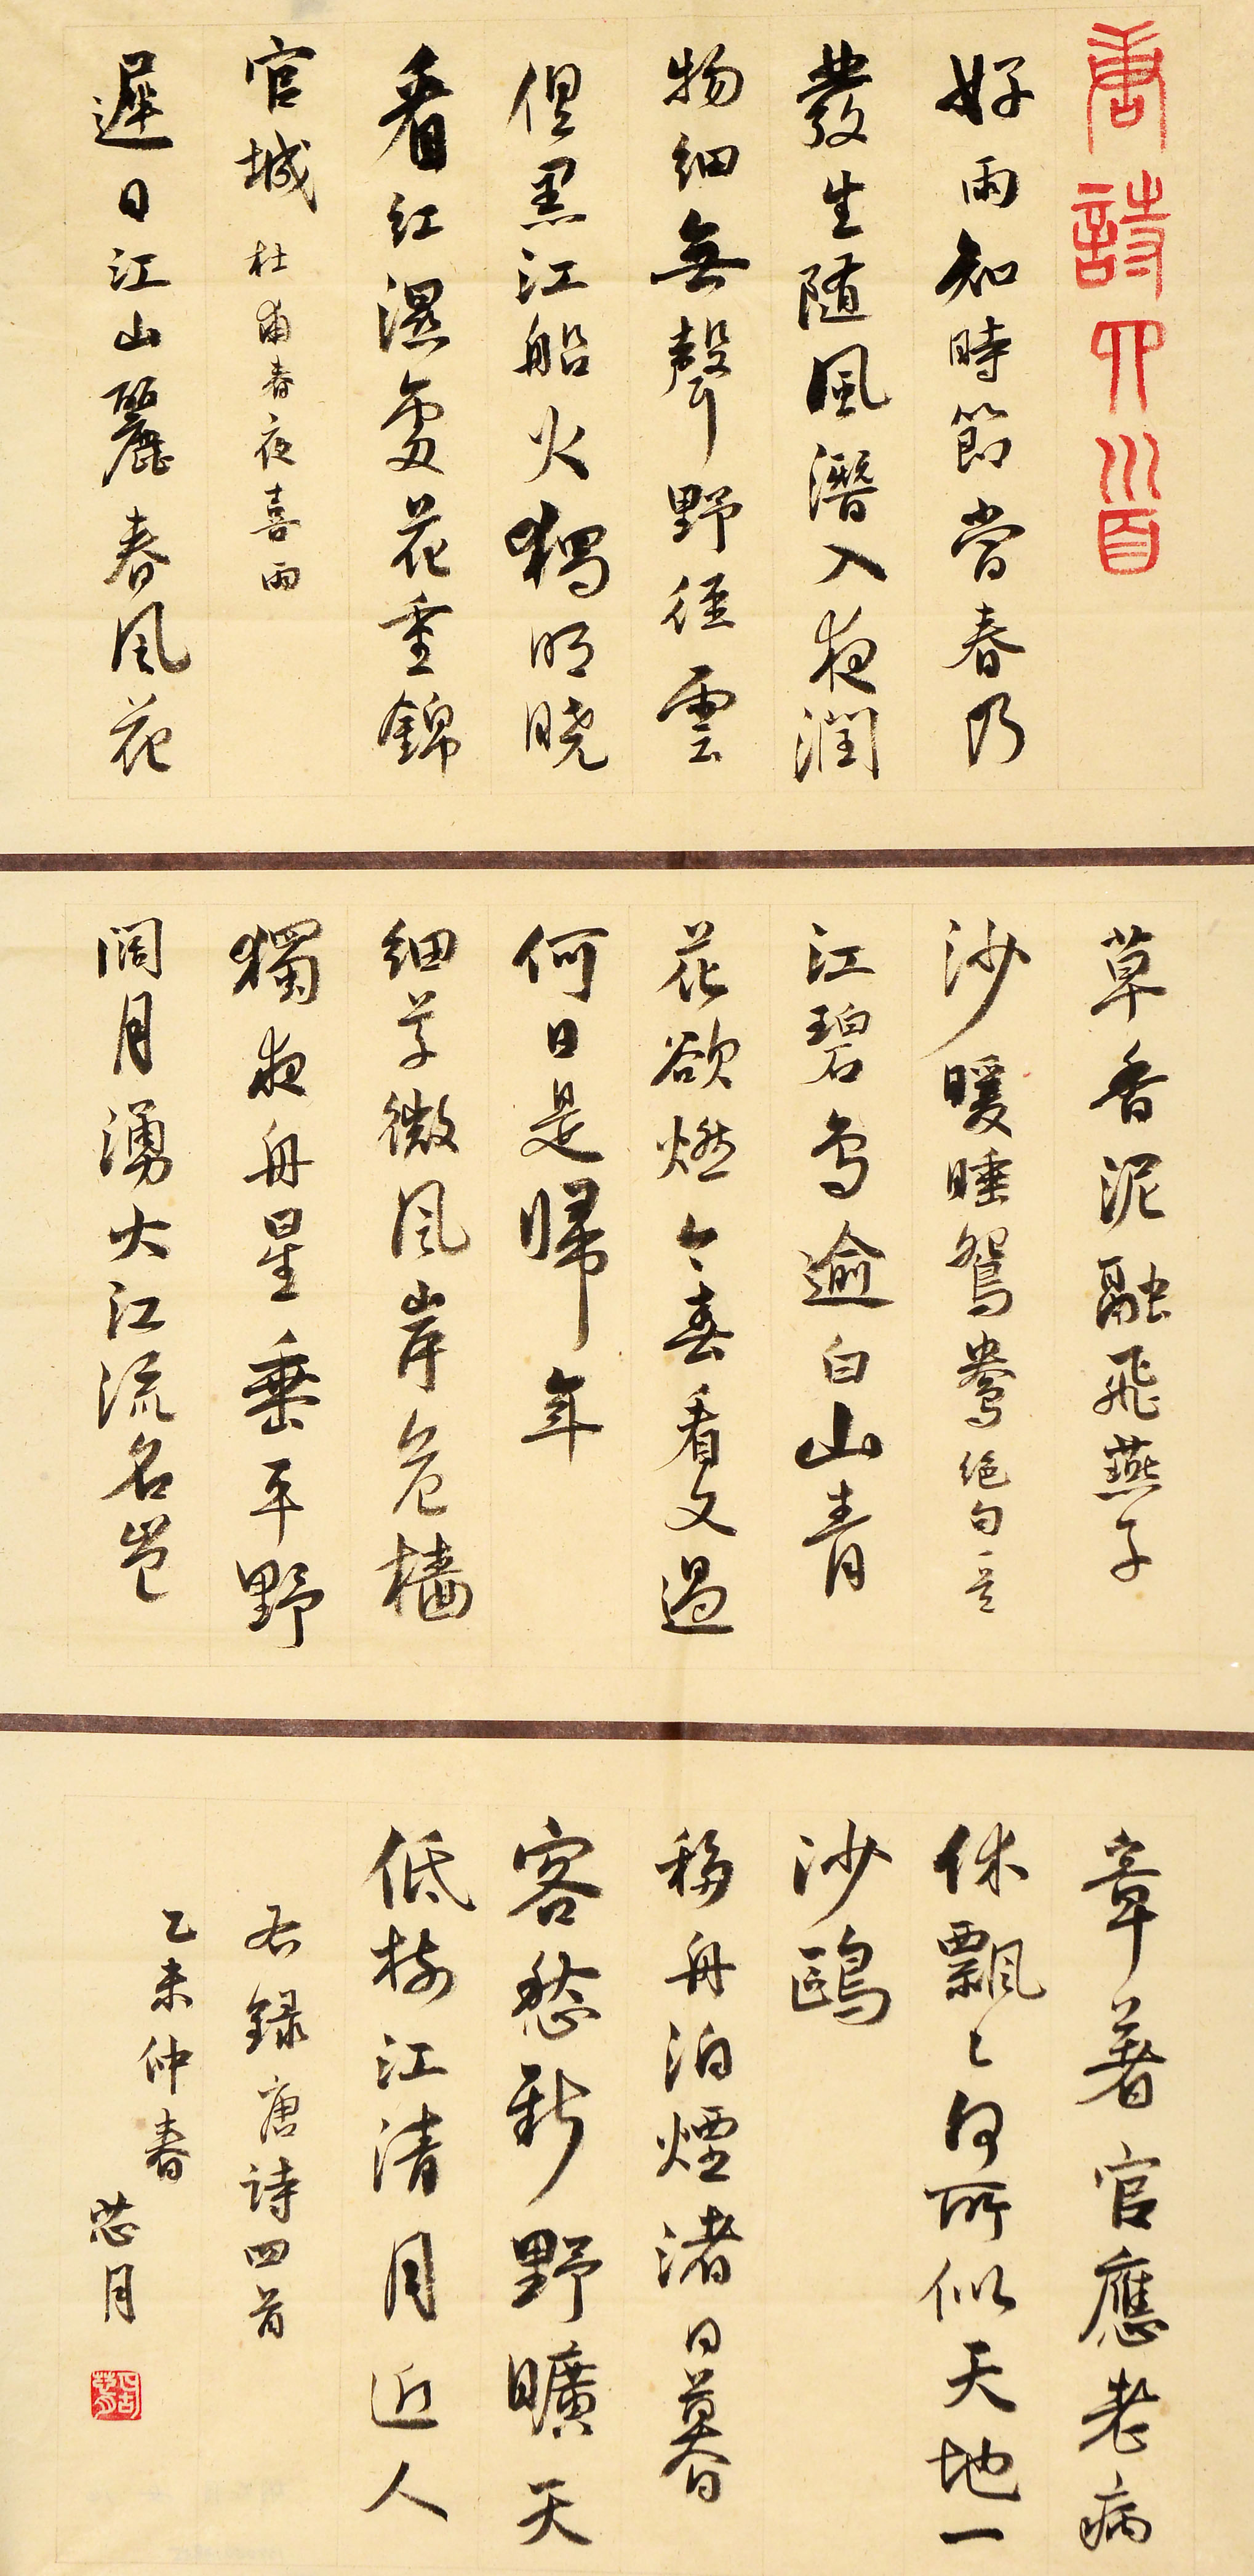 唐詩四首
好雨知時節當春乃
發生随風潛入夜潤
物細無聲野徑雲
俱黑江船火獨明曉
看紅濕處花重錦
官城 杜甫春夜喜雨
遲日江山麗春風花
草香泥融飛燕子
沙暖睡鴛鴦 絶句二首
江碧鸟逾白山青
花欲燃今春看又過
何日是歸年
细草微風岸危檣
獨夜舟星垂平野
闊月湧大江流名豈
文章著官應老病
休飄飄何所似天地一
沙鷗
移舟泊煙渚日暮
客愁新野曠天
低树江清月近人
右録唐詩四首
乙未仲春
芯月